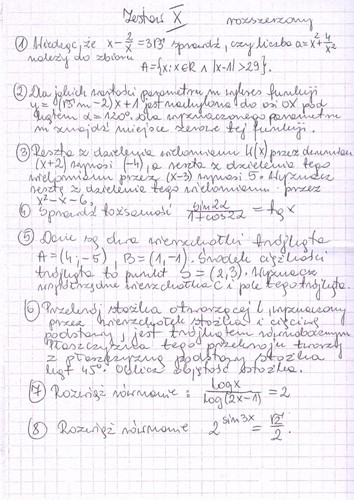 Zestaw X rozszerzony
① Wiedząc, że x - 2/x = 3√3 sprawdź, czy liczba a = x² + 4/x²
należy do zbioru
A = {x: x∈R ∧ |x-1| > 29}.
② Dla jakich wartości parametru m wykres funkcji
y = (√3 m - 2)x + 1 jest nachylony do osi OX pod
kątem α = 120°. Dla wyznaczonego parametru
m znajdź miejsce zerowe tej funkcji.
③ Reszta z dzielenia wielomianu W(x) przez dwumian
(x+2) wynosi (-4), a reszta z dzielenia tego
wielomianu przez (x-3) wynosi 5. Wyznacz
resztę z dzielenia tego wielomianu przez
x² - x - 6,
④ Sprawdź tożsamość sin2x / 1+cos2x = tgx
⑤ Dane są dwa wierzchołki trójkąta
A = (4; -5), B = (1, -1). Środek ciężkości
trójkąta to punkt S = (2, 3). Wyznacz
współrzędne wierzchołka C i pole tego trójkąta.
⑥ Przekrój stożka otworzącej l, wyznaczony
przez wierzchołek stożka i cięciwę
podstawy, jest trójkątem równobocznym.
Płaszczyzna tego przekroju tworzy
z płaszczyzną podstawy stożka
kąt 45°. Oblicz objętość stożka.
⑦ Rozwiąż równanie : logx / log(2x-1) = 2
⑧ Rozwiąż równanie 2^sin3x = √2/2.